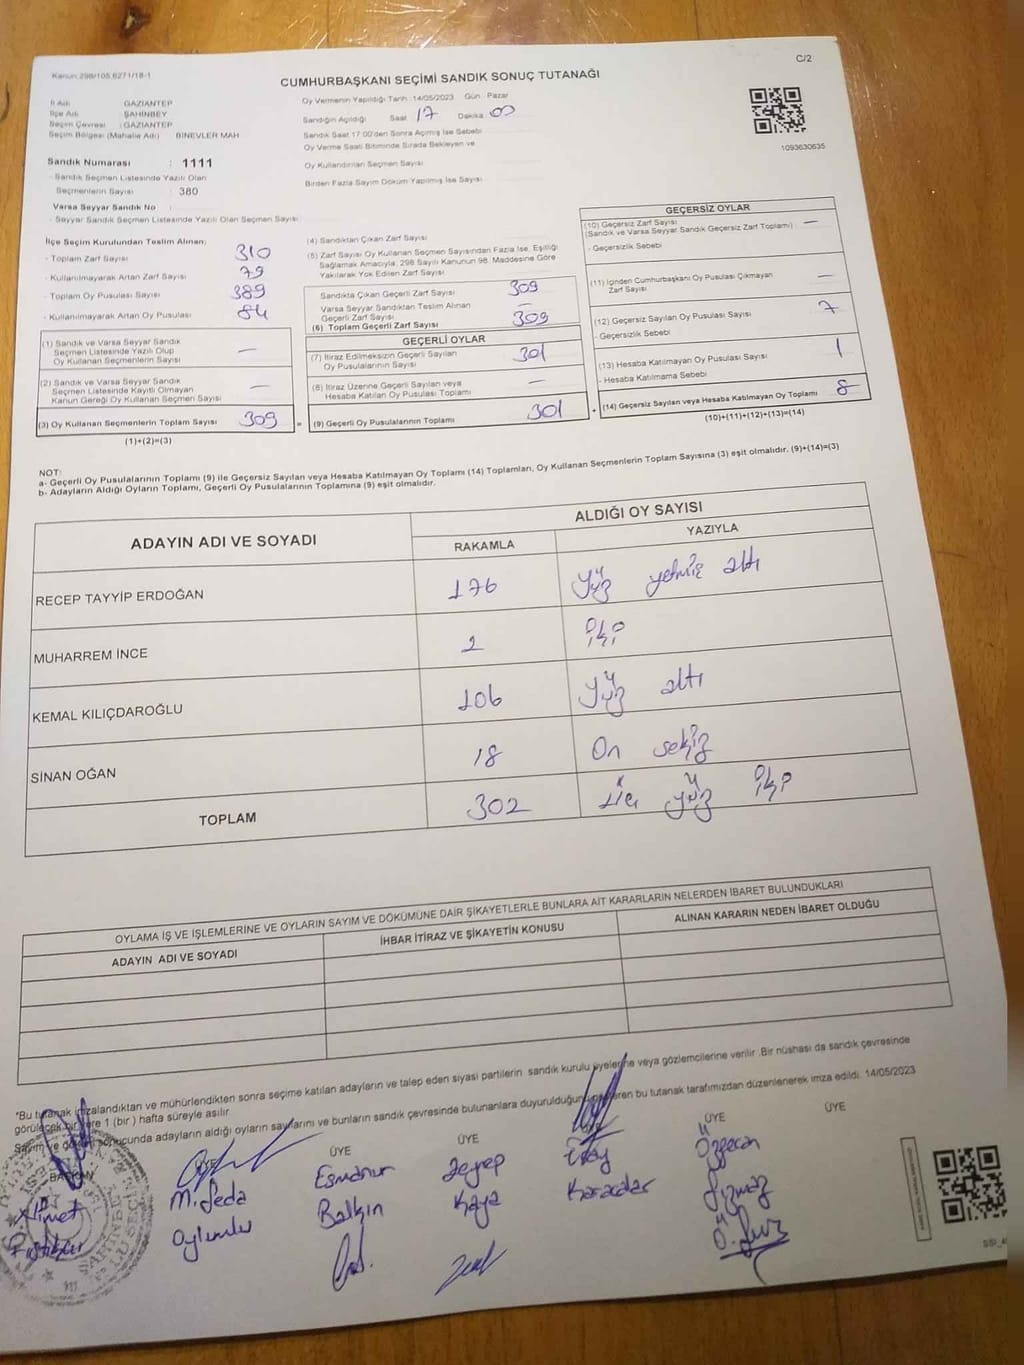 Kanun:298/105,6271/18-1
C/2
CUMHURBAŞKANI SEÇİMİ SANDIK SONUÇ TUTANAĞI
İl Adı : GAZİANTEP
İlçe Adı : ŞAHİNBEY
Seçim Çevresi : GAZİANTEP
Seçim Bölgesi (Mahalle Adı) BİNEVLER MAH
Sandık Numarası : 1111
- Sandık Seçmen Listesinde Yazılı Olan
Seçmenlerin Sayısı : 380
Varsa Seyyar Sandık No :
- Seyyar Sandık Seçmen Listesinde Yazılı Olan Seçmen Sayısı
Oy Vermenin Yapıldığı Tarih :14/05/2023 Gün : Pazar
Sandığın Açıldığı Saat 17 Dakika 00
Sandık Saat 17:00'den Sonra Açılmış İse Sebebi
Oy Verme Saati Bitiminde Sırada Bekleyen ve
Oy Kullandırılan Seçmen Sayısı
Birden Fazla Sayım Döküm Yapılmış İse Sayısı
1093630635
İlçe Seçim Kurulundan Teslim Alınan;
- Toplam Zarf Sayısı 310
- Kullanılmayarak Artan Zarf Sayısı 79
- Toplam Oy Pusulası Sayısı 389
- Kullanılmayarak Artan Oy Pusulası 84
(1) Sandık ve Varsa Seyyar Sandık
Seçmen Listesinde Yazılı Olup
Oy Kullanan Seçmenlerin Sayısı —
(2) Sandık ve Varsa Seyyar Sandık
Seçmen Listesinde Kayıtlı Olmayan
Kanun Gereği Oy Kullanan Seçmen Sayısı —
(3) Oy Kullanan Seçmenlerin Toplam Sayısı 309 =
(1)+(2)=(3)
(4) Sandıktan Çıkan Zarf Sayısı
(5) Zarf Sayısı Oy Kullanan Seçmen Sayısından Fazla İse, Eşitliği
Sağlamak Amacıyla; 298 Sayılı Kanunun 98. Maddesine Göre
Yakılarak Yok Edilen Zarf Sayısı
Sandıkta Çıkan Geçerli Zarf Sayısı 309
Varsa Seyyar Sandıktan Teslim Alınan
Geçerli Zarf Sayısı —
(6) Toplam Geçerli Zarf Sayısı 309
GEÇERLİ OYLAR
(7) İtiraz Edilmeksizin Geçerli Sayılan
Oy Pusulalarının Sayısı 301
(8) İtiraz Üzerine Geçerli Sayılan veya
Hesaba Katılan Oy Pusulası Toplamı —
(9) Geçerli Oy Pusulalarının Toplamı 301 +
GEÇERSİZ OYLAR
(10) Geçersiz Zarf Sayısı
(Sandık ve Varsa Seyyar Sandık Geçersiz Zarf Toplamı) —
- Geçersizlik Sebebi
(11) İçinden Cumhurbaşkanı Oy Pusulası Çıkmayan
Zarf Sayısı —
(12) Geçersiz Sayılan Oy Pusulası Sayısı 7
- Geçersizlik Sebebi
(13) Hesaba Katılmayan Oy Pusulası Sayısı 1
- Hesaba Katılmama Sebebi
(14) Geçersiz Sayılan veya Hesaba Katılmayan Oy Toplamı 8
(10)+(11)+(12)+(13)=(14)
NOT:
a- Geçerli Oy Pusulalarının Toplamı (9) ile Geçersiz Sayılan veya Hesaba Katılmayan Oy Toplamı (14) Toplamları, Oy Kullanan Seçmenlerin Toplam Sayısına (3) eşit olmalıdır. (9)+(14)=(3)
b- Adayların Aldığı Oyların Toplamı, Geçerli Oy Pusulalarının Toplamına (9) eşit olmalıdır.
ADAYIN ADI VE SOYADI
ALDIĞI OY SAYISI
RAKAMLA YAZIYLA
RECEP TAYYİP ERDOĞAN 176 yüz yetmiş altı
MUHARREM İNCE 2 iki
KEMAL KILIÇDAROĞLU 106 yüz altı
SİNAN OĞAN 18 On sekiz
TOPLAM 302 üç yüz iki
OYLAMA İŞ VE İŞLEMLERİNE VE OYLARIN SAYIM VE DÖKÜMÜNE DAİR ŞİKAYETLERLE BUNLARA AİT KARARLARIN NELERDEN İBARET BULUNDUKLARI
ADAYIN ADI VE SOYADI İHBAR İTİRAZ VE ŞİKAYETİN KONUSU ALINAN KARARIN NEDEN İBARET OLDUĞU
"Bu tutanak imzalandıktan ve mühürlendikten sonra seçime katılan adayların ve talep eden siyasi partilerin sandık kurulu üyelerine veya gözlemcilerine verilir .Bir nüshası da sandık çevresinde
görülecek bir yere 1 (bir ) hafta süreyle asılır.
Sayım ve döküm sonucunda adayların aldığı oyların sayılarını ve bunların sandık çevresinde bulunanlara duyurulduğunu gösteren bu tutanak tarafımızdan düzenlenerek imza edildi. 14/05/2023
BAŞKAN ÜYE ÜYE ÜYE ÜYE ÜYE ÜYE
Esmanur Zeynep Özgecan
Balkın Kaya Karacalar